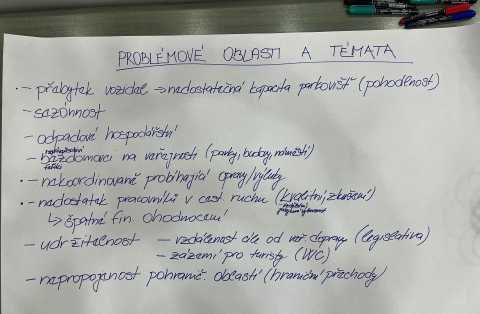 PROBLÉMOVÉ OBLASTI A TÉMATA
· – přebytek vozidel → nedostatečná kapacita parkovišť (pohodlnost)
– sezónnost
– odpadové hospodářství
– bezdomovci na veřejnosti (parky, budovy, náměstí)
· – nekoordinovaně probíhající opravy/výluky
· – nedostatek pracovníků v cest. ruchu (kvalitní, zkušení)
↳ špatné fin. ohodnocení
– udržitelnost – vzdálenost ale od veř. dopravy (legislativa)
– zázemí pro turisty (WC)
– nepropojenost pohranič. oblastí (hraniční přechody)